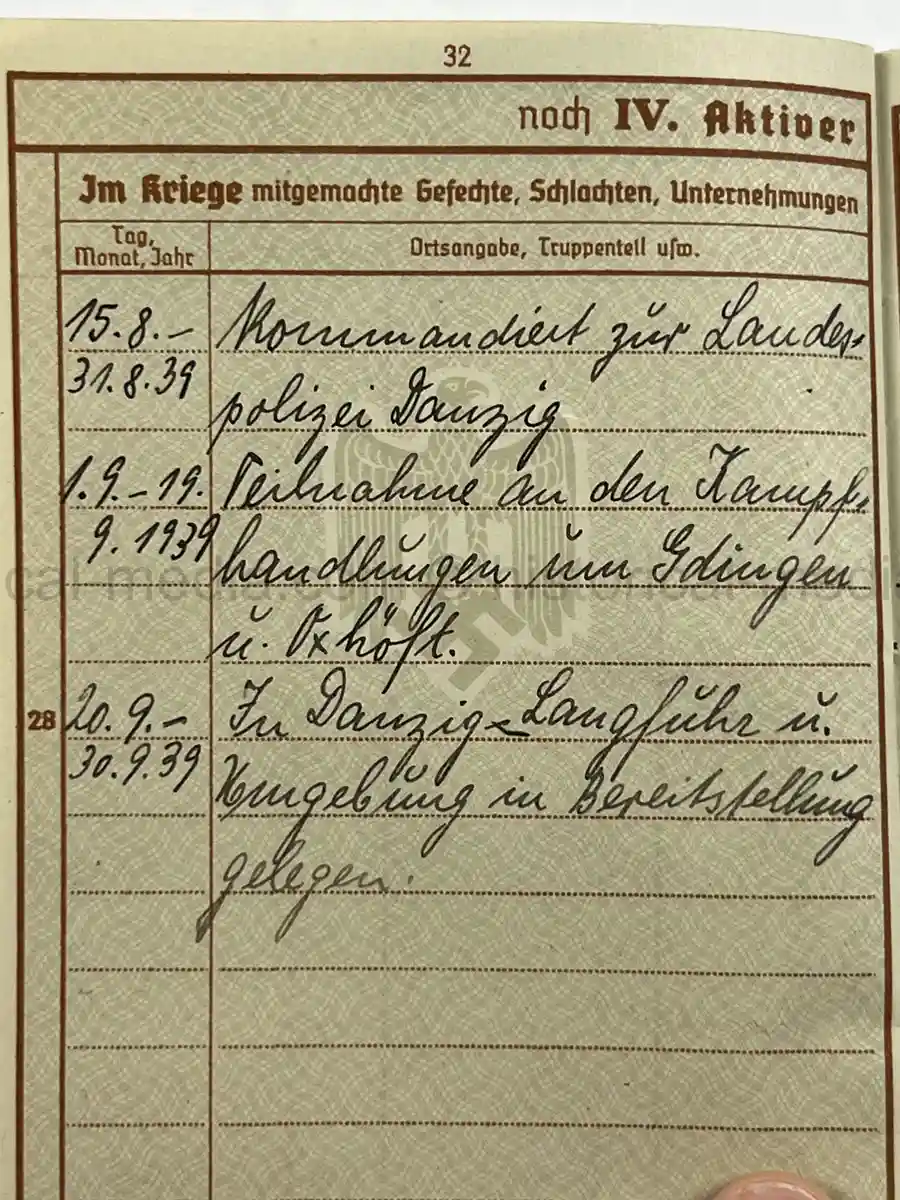 32
noch IV. Aktiver
Im Kriege mitgemachte Gefechte, Schlachten, Unternehmungen
Tag, Monat, Jahr
Ortsangabe, Truppenteil usw.
15.8.– Kommandiert zur Landes-
31.8.39 polizei Danzig
1.9.–19. Teilnahme an den Kampf-
9.1939 handlungen um Gdingen
u. Oxhöft.
28 20.9.– In Danzig-Langfuhr u.
30.9.39 Umgebung in Bereitstellung
gelegen.